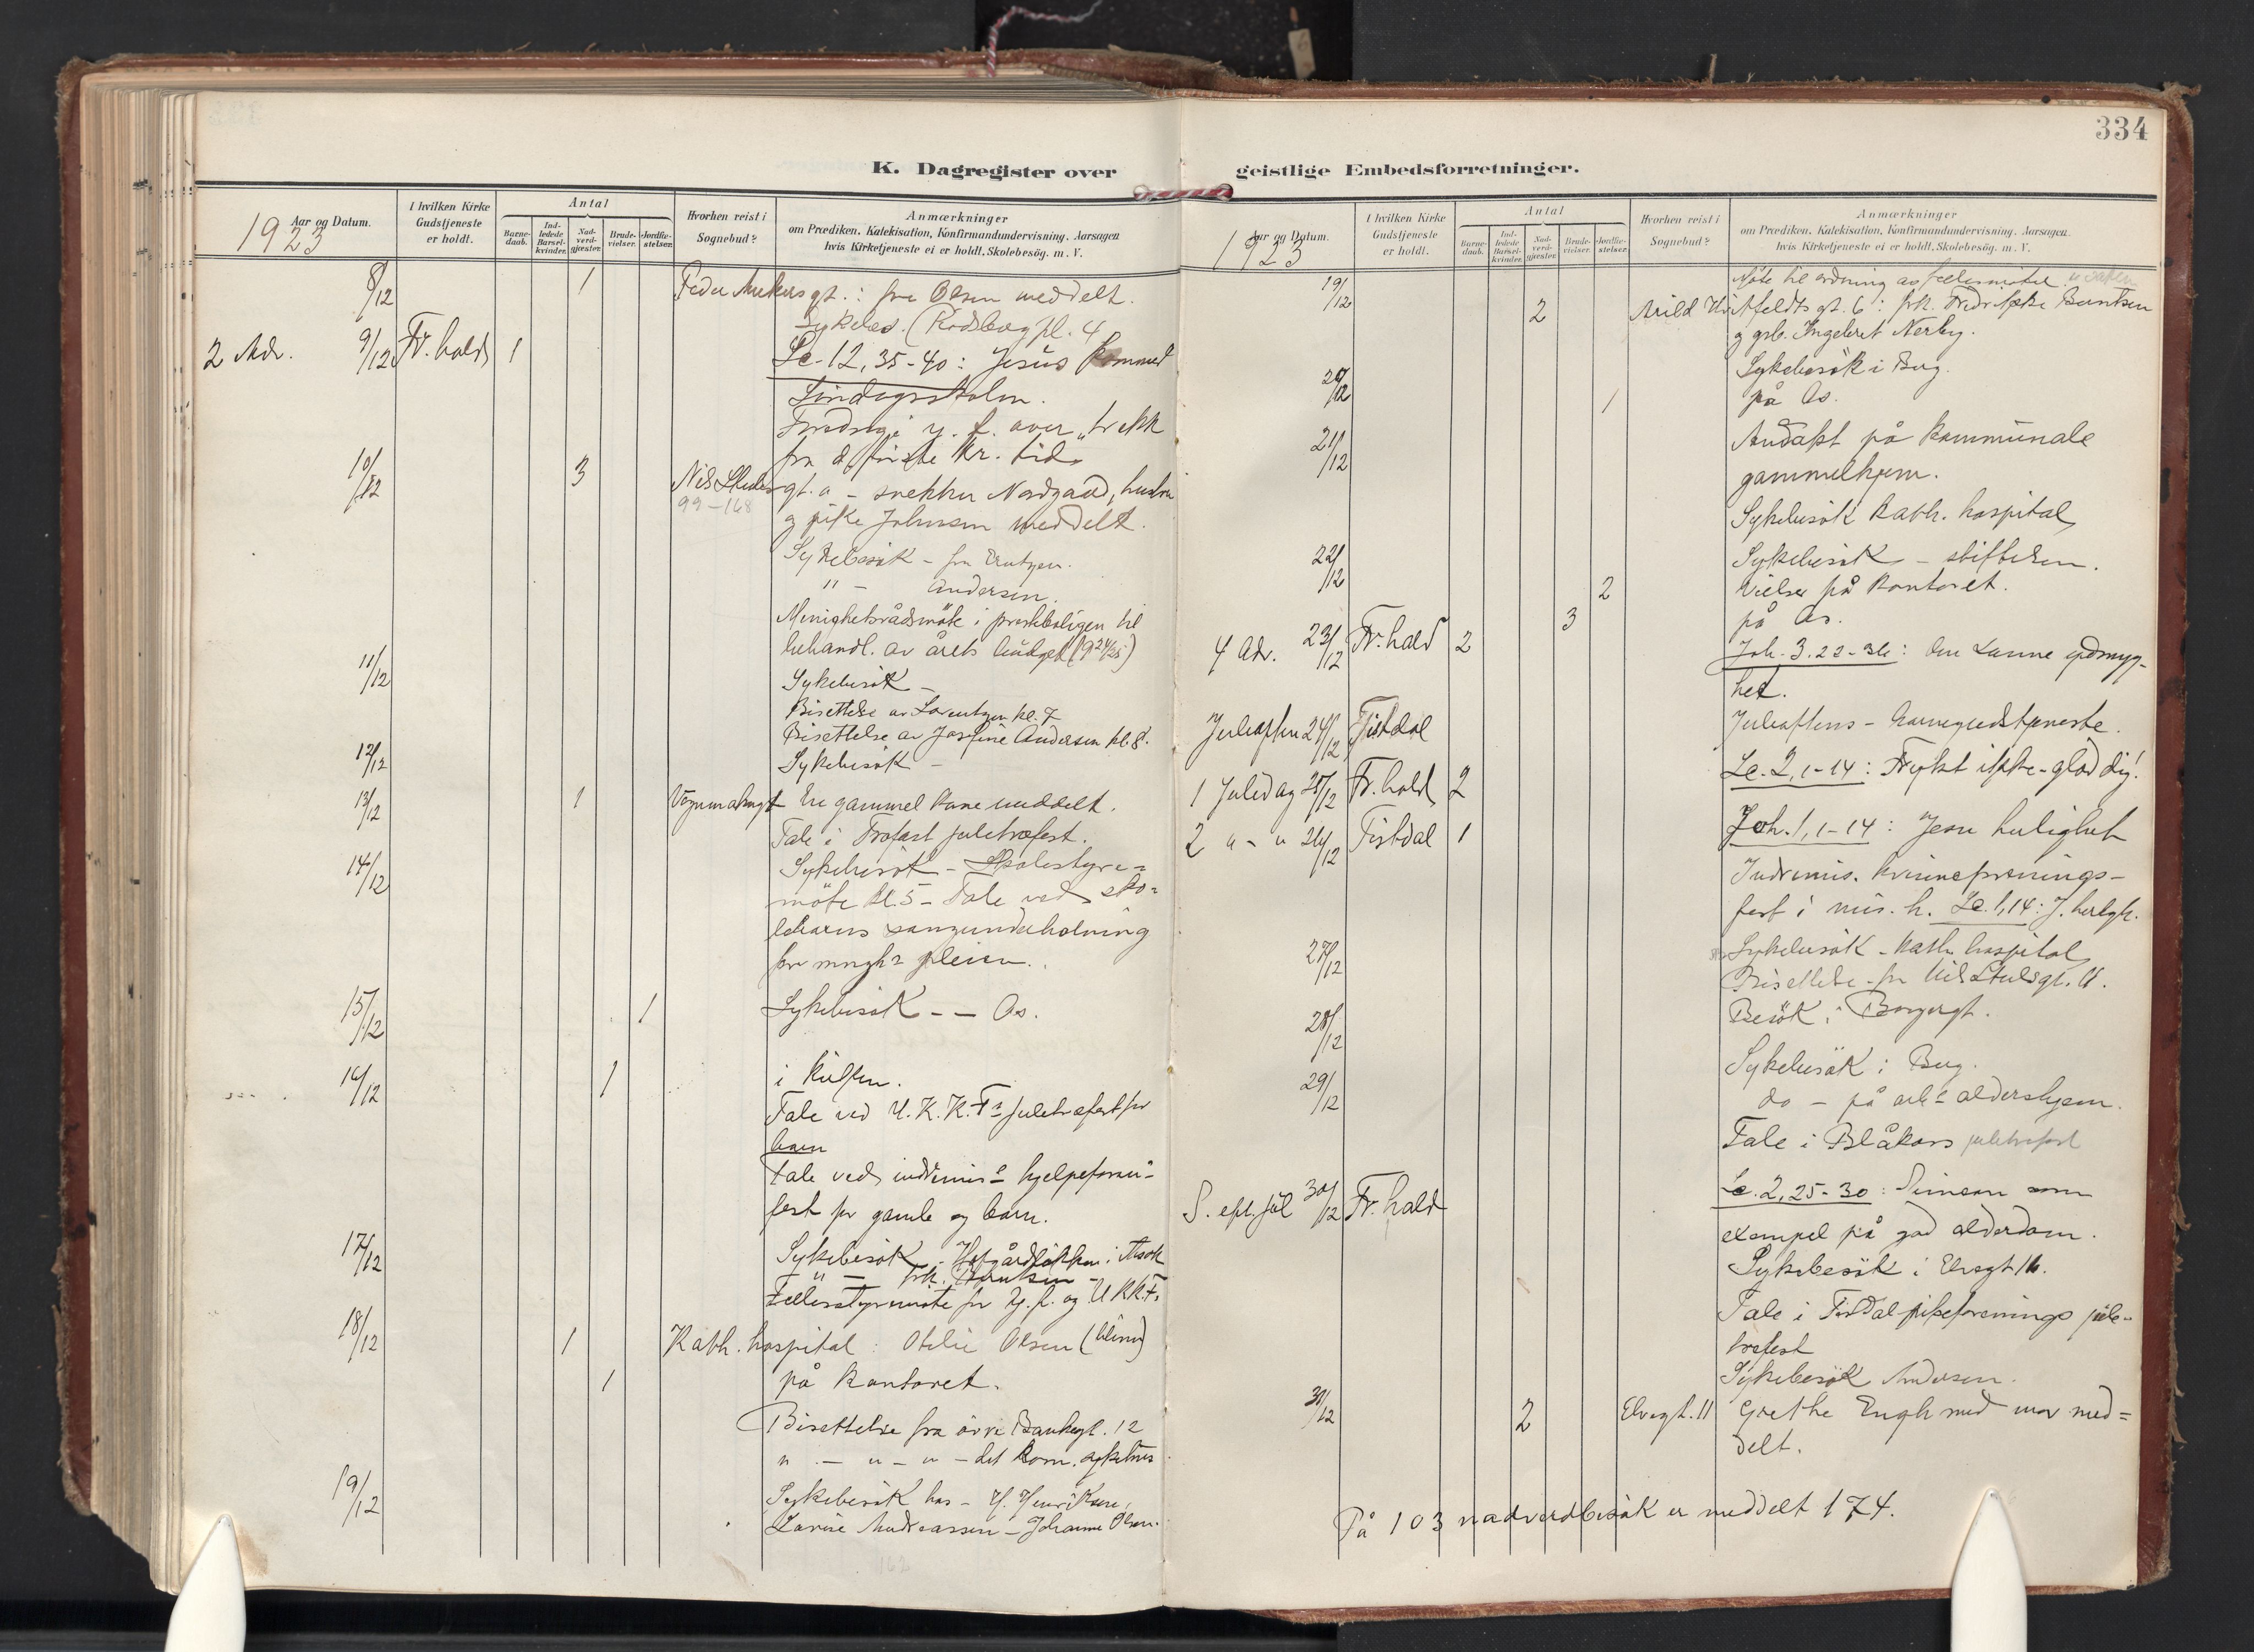 334
K. Dagregister over
geistlige Embedsforretninger.
Aar og Datum.
1923
I hvilken Kirke Gudstjeneste er holdt.
Antal
Barne-daab.
Ind-ledede Barsel-kvinder.
Nad-verd-gjæster.
Brude-vielser.
Jordfæ-stelser.
Hvorhen reist i Sognebud?
Anmærkninger
om Prædiken, Katekisation, Konfirmandundervisning, Aarsagen
hvis Kirketjeneste ei er holdt, Skolebesög. m. V.
8/12 1 gt.: fru Olsen meddelt.
Sykebes. (Rodsbergpl. 4
2 Adv. 9/12 Fr.hald 1 Lc. 12, 35-40: Jesus
Foredrag i y. f. over "trekk
fra d. første kr. tid.
10/12 3 Nils gt. a - snekker Nordgaard, hustru
99-168
og pike Johnsen meddelt.
Sykebesøk - fru
" - Andersen.
Menighetsrådsmöte i presteboligen til
behandl. av årets budget (1924/25)
11/12 Sykebesök -
Bisettelse av Lorentzen kl. 7
Bisettelse av Josefine Andersen kl. 8.
12/12 Sykebesök -
13/12 1 En gammel kone meddelt.
Tale i Trofast juletræfest.
14/12 Sykebesök - Skolestyre=
möte kl. 5 - Tale ved sko=
lebarns sangunderholdning
for mnghs pleien.
15/12 1 Sykebesök - - As.
16/12 1 i
Tale ved U.K.K.Fs juletræfest for
barn
Tale ved indremis hjelpeforen-
fest for gamle og barn.
17/12 Sykebesök -
" - frk.
Fællesstyremöte for y. f. og U KK.F.
18/12 1 Kath. hospital: Otilie Olsen (blind)
1 på kontoret.
Bisettelse fra övre Bankegt. 12
" - " - " - det kom. sykehus
19/12 Sykebesök hos - H. Henriksen,
Lovise Andreassen - Johanne Olsen.
162
Aar og Datum.
1923
I hvilken Kirke Gudstjeneste er holdt.
Antal
Barne-daab.
Ind-ledede Barsel-kvinder.
Nad-verd-gjæster.
Brude-vielser.
Jordfæ-stelser.
Hvorhen reist i Sognebud?
Anmærkninger
om Prædiken, Katekisation, Konfirmandundervisning, Aarsagen
hvis Kirketjeneste ei er holdt, Skolebesög. m. V.
19/12 Möte til ordning av fællesmötet
2 Arild Huitfeldts gt. 6: frk. Fredrikke Berntsen
og Ingebret Nerby.
20/12 Sykebesök i Bug.
1 på As.
21/12 Andakt på kommunale
gammelhjem.
Sykebesök kath. hospital
22/12 Sykebesök - stiftelsen.
2 Vielser på kontoret.
3 på As.
4 Adv. 23/12 Fr.hald 2 Joh. 3. 22-36: Den sanne ydmyg-
het.
Juleaften 24/12 Tistdal Juleaftens - barnegudstjeneste.
Lc. 2, 1-14: Frykt ikke - glæd dig!
1 Juledag 25/12 Fr.hald 2
2 " - " 26/12 Tistdal 1 Joh. 1, 1-14: Jesu herlighet
Indremis. kvinneforenings-
fest i mis. h. Lc. 1,14: J. herligh.
27/12 Sykebesök - kath. hospital
Bisettelse - fra Nils gt. 11.
28/12 Besök i Borgergt.
Sykebesök i Bug.
29/12 do - på arb aldershjem.
Tale i Blåkors juletrefest
S. eft. jul 30/12 Fr.hald Lc. 2, 25-30: Simeon som
exempel på god alderdom.
Sykebesök i Elvegt 11.
Tale i Tistdal pikeforenings jule-
trefest
Sykebesök Andersen.
31/12 2 Elvegt. 11 Grethe Engh med mor med=
delt.
På 103 nadverdbesök er meddelt 174.